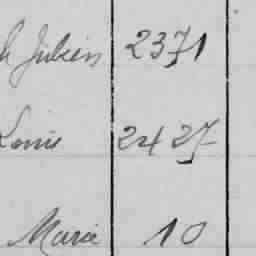 Julien 2371
Louis 2427
Marie 10